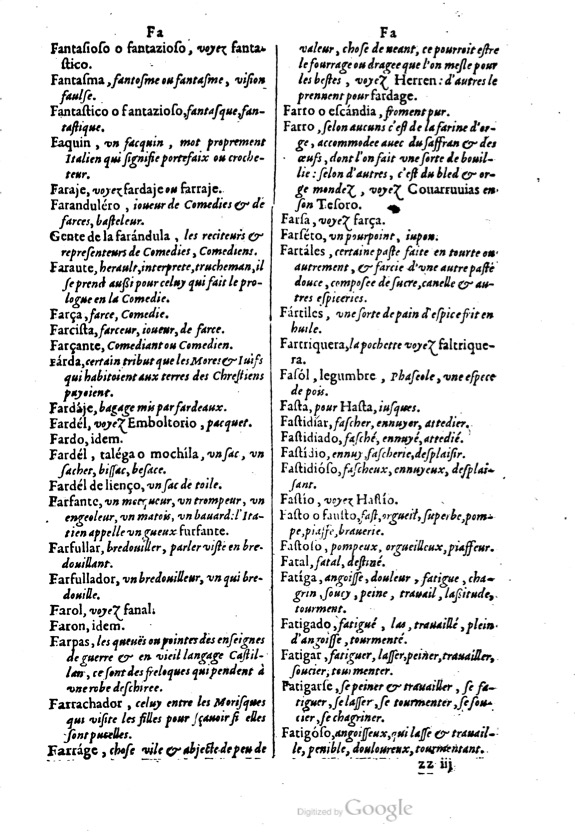 Fa
Fantasioso o fantazioso, voyez fanta-
stico.
Fantasma, fantosme ou fantasme, vision
faulse.
Fantastico o fantazioso, fantasque, fan-
tastique.
Faquin, vn facquin, mot proprement
Italien qui signifie portefaix ou croche-
teur.
Faraje, voyez fardaje ou farraje.
Faranduléro, ioueur de Comedies & de
farces, basteleur.
Gente de la farándula, les reciteurs &
representeurs de Comedies, Comediens.
Faraute, herault, interprete, trucheman, il
se prend aussi pour celuy qui fait le pro-
logue en la Comedie.
Farça, farce, Comedie.
Farcista, farceur, ioueur, de farce.
Farçante, Comediant ou Comedien.
Fárda, certain tribut que les Mores & Iuifs
qui habitoient aux terres des Chrestiens
payoient.
Fardáje, bagage mis par fardeaux.
Fardél, voyez Emboltorio, pacquet.
Fardo, idem.
Fardél, taléga o mochíla, vn sac, vn
sachet, bissac, besace.
Fardél de lienço, vn sac de toile.
Farfante, vn mocqueur, vn trompeur, vn
engeoleur, vn matois, vn bauard: l'Ita-
lien appelle vn gueux furfante.
Farfullar, bredouiller, parler viste en bre-
douillant.
Farfullador, vn bredouilleur, vn qui bre-
douille.
Farol, voyez fanal.
Faron, idem.
Farpas, les queuës ou pointes des enseignes
de guerre & en vieil langage Castil-
lan, ce sont des freloques qui pendent à
vne robe deschiree.
Farrachador, celuy entre les Morisques
qui visite les filles pour sçauoir si elles
sont pucelles.
Farráge, chose vile & abjecte de peu de
Fa
valeur, chose de neant, ce pourroit estre
le fourrage ou dragee que l'on mesle pour
les bestes, voyez Herren: d'autres le
prennent pour fardage.
Farro o escándia, froment pur.
Farro, selon aucuns c'est de la farine d'or-
ge, accommodee auec du saffran & des
œufs, dont l'on fait vne sorte de bouil-
lie: selon d'autres, c'est du bled & or-
ge mondez, voyez Couarruuias en
son Tesoro.
Farsa, voyez farça.
Farséto, vn pourpoint, iupon.
Fartáles, certaine paste faite en tourte ou
autrement, & farcie d'vne autre paste
douce, composee de sucre, canelle & au-
tres espiceries.
Fártiles, vne sorte de pain d'espice frit en
huile.
Fartriquera, la pochette voyez faltrique-
ra.
Fasól, legumbre, Phaseole, vne espece
de pois.
Fasta, pour Hasta, iusques.
Fastidiar, fascher, ennuyer, attedier.
Fastidiado, fasché, ennuyé, attedié.
Fastidio, ennuy, fascherie, desplaisir.
Fastidióso, fascheux, ennuyeux, desplai-
sant.
Fastío, voyez Hastío.
Fasto o fausto, fast, orgueil, superbe, pom-
pe, piaffe, brauerie.
Fastoso, pompeux, orgueilleux, piaffeur.
Fatal, fatal, destiné.
Fatiga, angoisse, douleur, fatigue, cha-
grin, soucy, peine, trauail, lassitude,
tourment.
Fatigado, fatigué, las, trauaillé, plein
d'angoisse, tourmenté.
Fatigar, fatiguer, lasser, peiner, trauailler,
soucier, tourmenter.
Fatigarse, se peiner & trauailler, se fa-
tiguer, se lasser, se tourmenter, se sou-
cier, se chagriner.
Fatigóso, angoisseux, qui lasse & trauail-
le, penible, douloureux, tourmentant.
zz iij
Digitized by Google